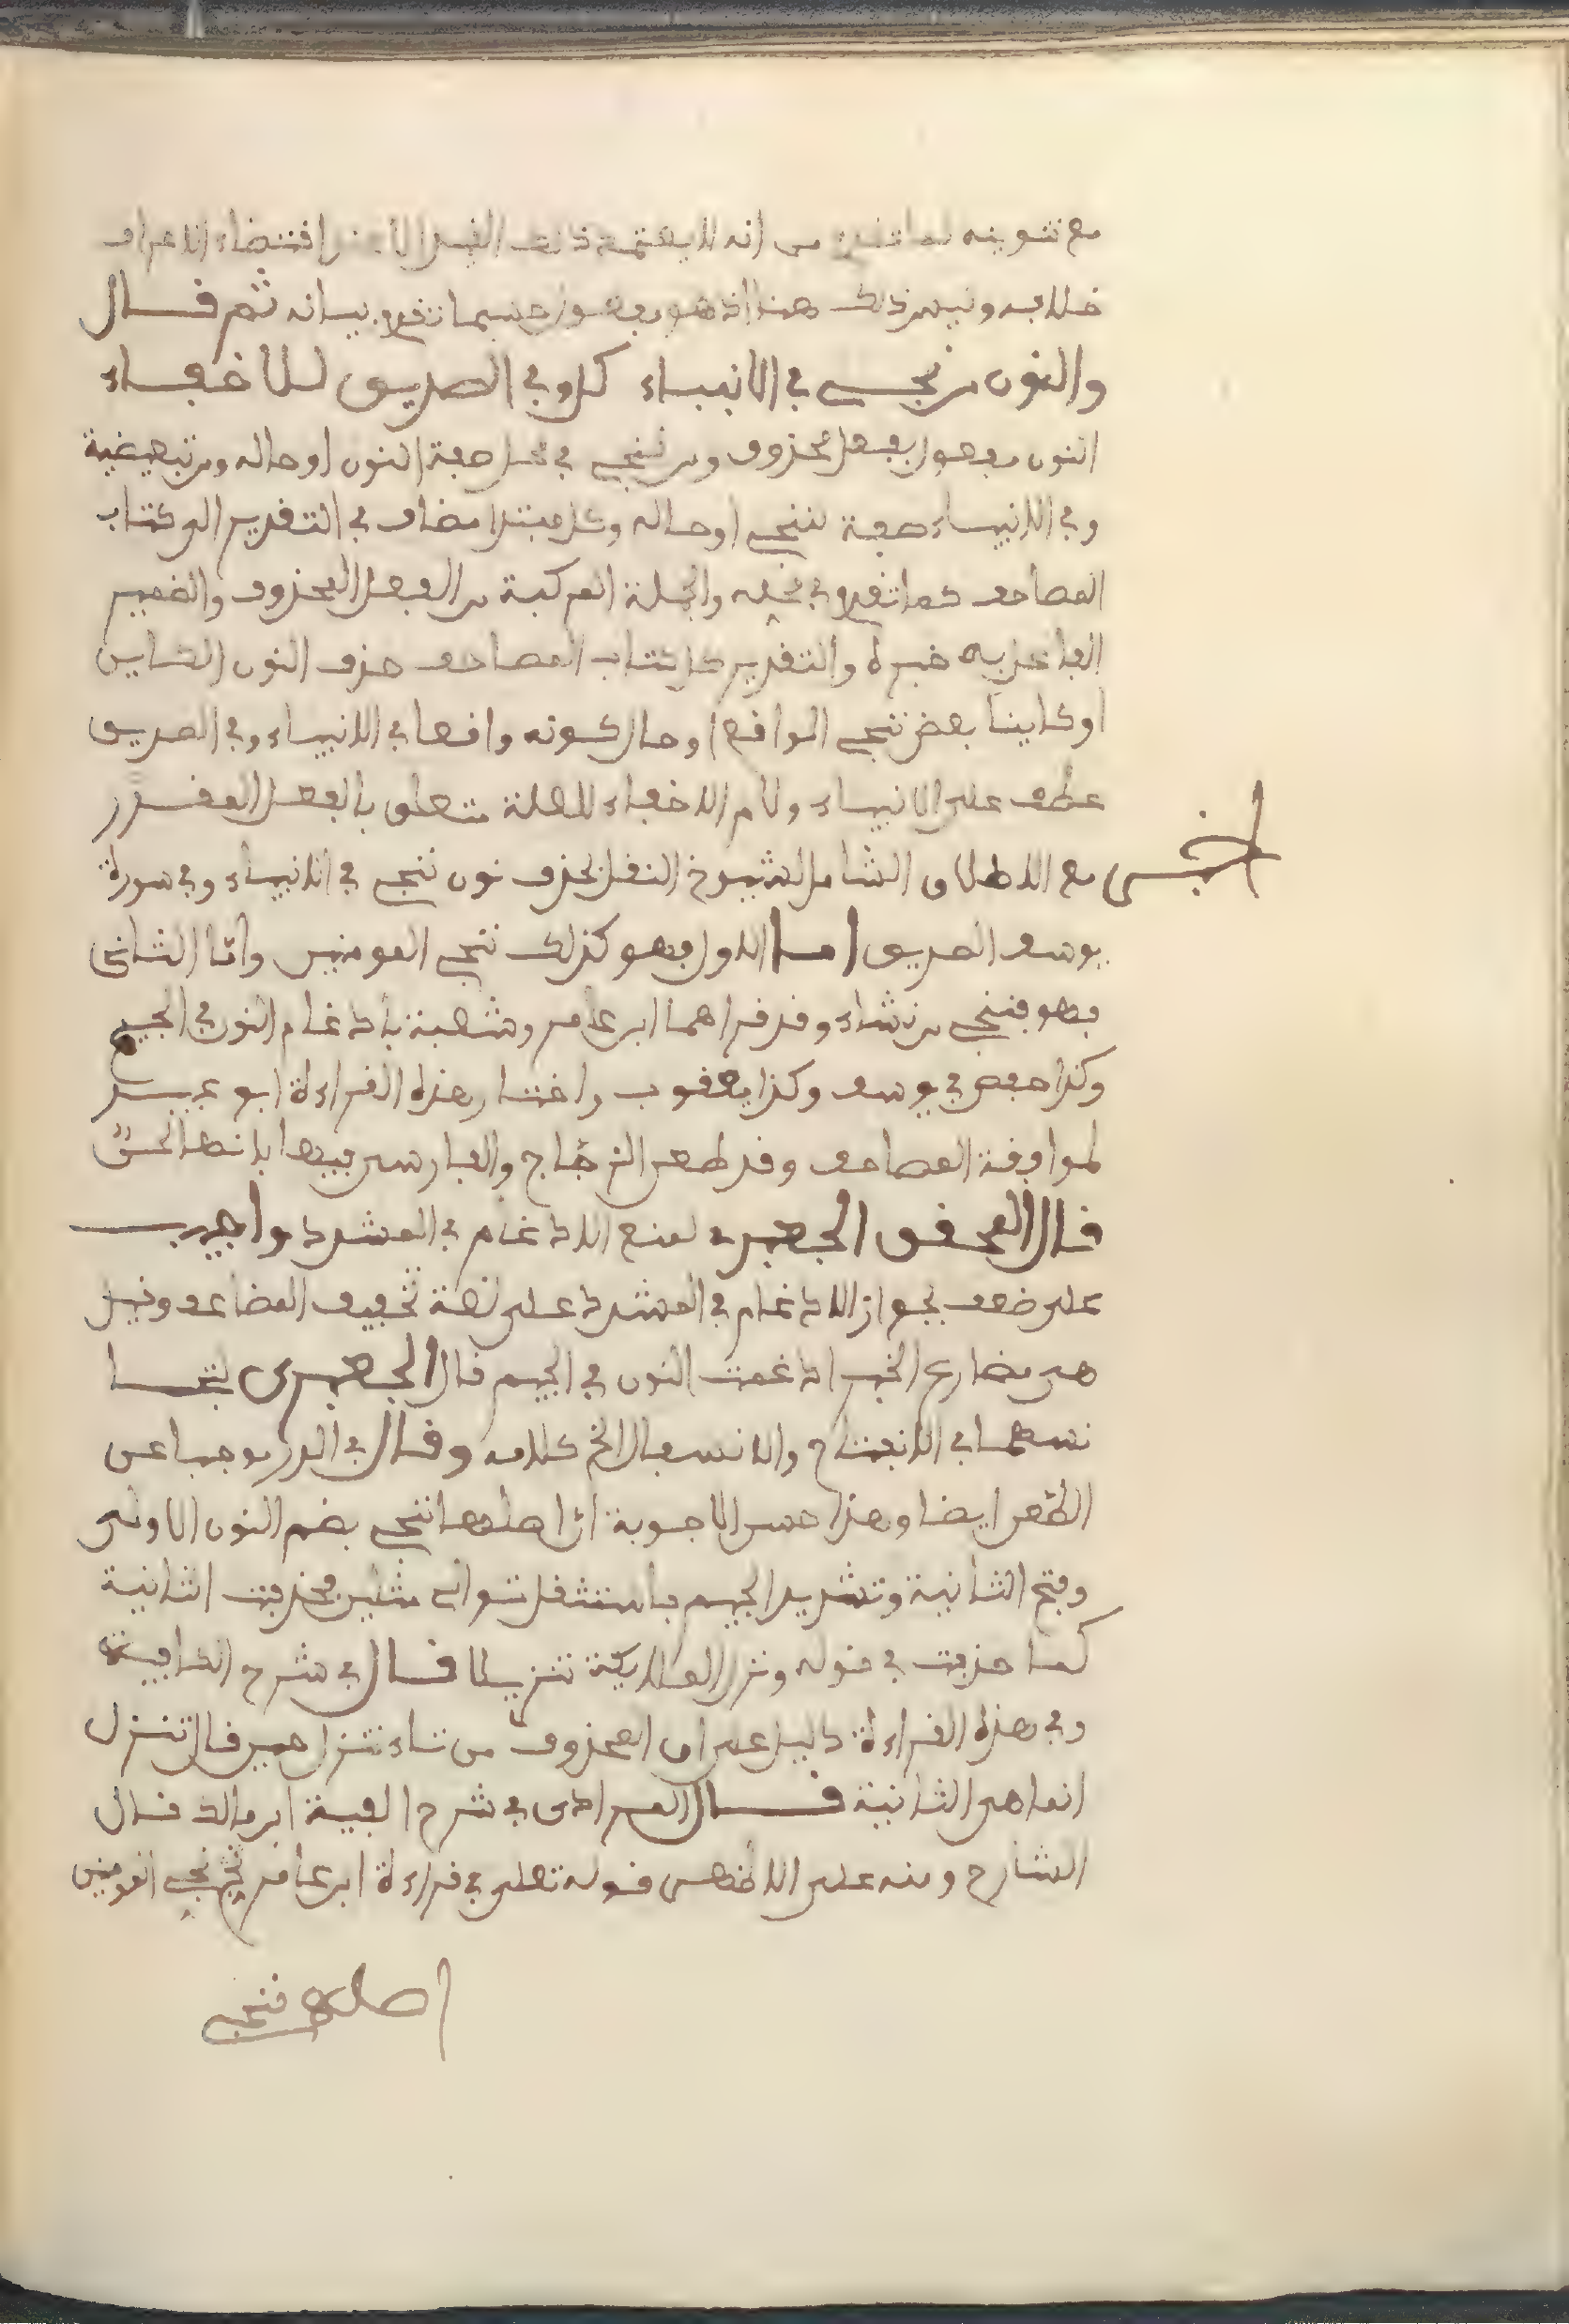 مع تنوينه لما تقدم من انه لا يعتمد ذلك القيد الا عند اقتضاء الاعراب
خلافه وليس ذلك هنا اذ هو مفعول حسبما تقدم بيانه ثم قال
والنون من ننجي في الانبياء كل وفي الصديق للاخفاء
النون مفعول بفعل محذوف ومن ننجي في محل صفة النون او حاله ومن تبعيضية
وفي الانبياء صفة لننجي او حاله وكل مبتدا مضاف في التقدير الى كتاب
المصاحف كما تقدم في محله والجملة المركبة من الفعل المحذوف والضمير
الفاعل به خبره والتقدير كل كتاب المصاحف حذف النون الكاين
او كاينا بعض ننجي الواقع او حال كونه واقعا في الانبياء وفي الصديق
عطف على الانبياء ولام الاخفاء للعلة متعلق بالفعل المقدر
اخبر مع الاطلاق الشامل لشيوخ النقل بحذف نون ننجي في الانبياء وفي سورة
يوسف الصديق اما الاول فهو كذلك ننجي المومنين واما الثاني
فهو فننجي من نشاء وقد قراهما ابن عامر وشعبة بادغام النون في الجيم
وكذا حفص في يوسف وكذا يعقوب واختار هذه القراءة ابو عبيد
لموافقة المصاحف وقد طعن الزجاج والفارسي فيها بانها لحن
قال المحقق الجعبري لمنع الادغام في المشدد واجيب
على ضعف بجواز الادغام في المشدد على لغة تخفيف المضاعف وقيل
هي مضارع انجي ادغمت النون في الجيم قال الجعبري لتجا
نسهما في الانفتاح والانسفال الخ كلامه وقال في الدر موجبا عن
الطعن ايضا وهذا احسن الاجوبة ان اصلها ننجي بضم النون الاولى
وفتح الثانية وتشديد الجيم فاستثقل توالي مثلين فحذفت الثانية
كما حذفت في قوله ونزل الملايكة تنزيلا قال في شرح الكافية
وفي هذه القراءة دليل على ان المحذوف من تاء تتنزل حين قال تنزل
انما هي الثانية قال المرادي في شرح الفية ابن مالك قال
الشارح ومنه على الاظهر قوله تعلى في قراءة ابن عامر نجي المومنين
اصله ننجي